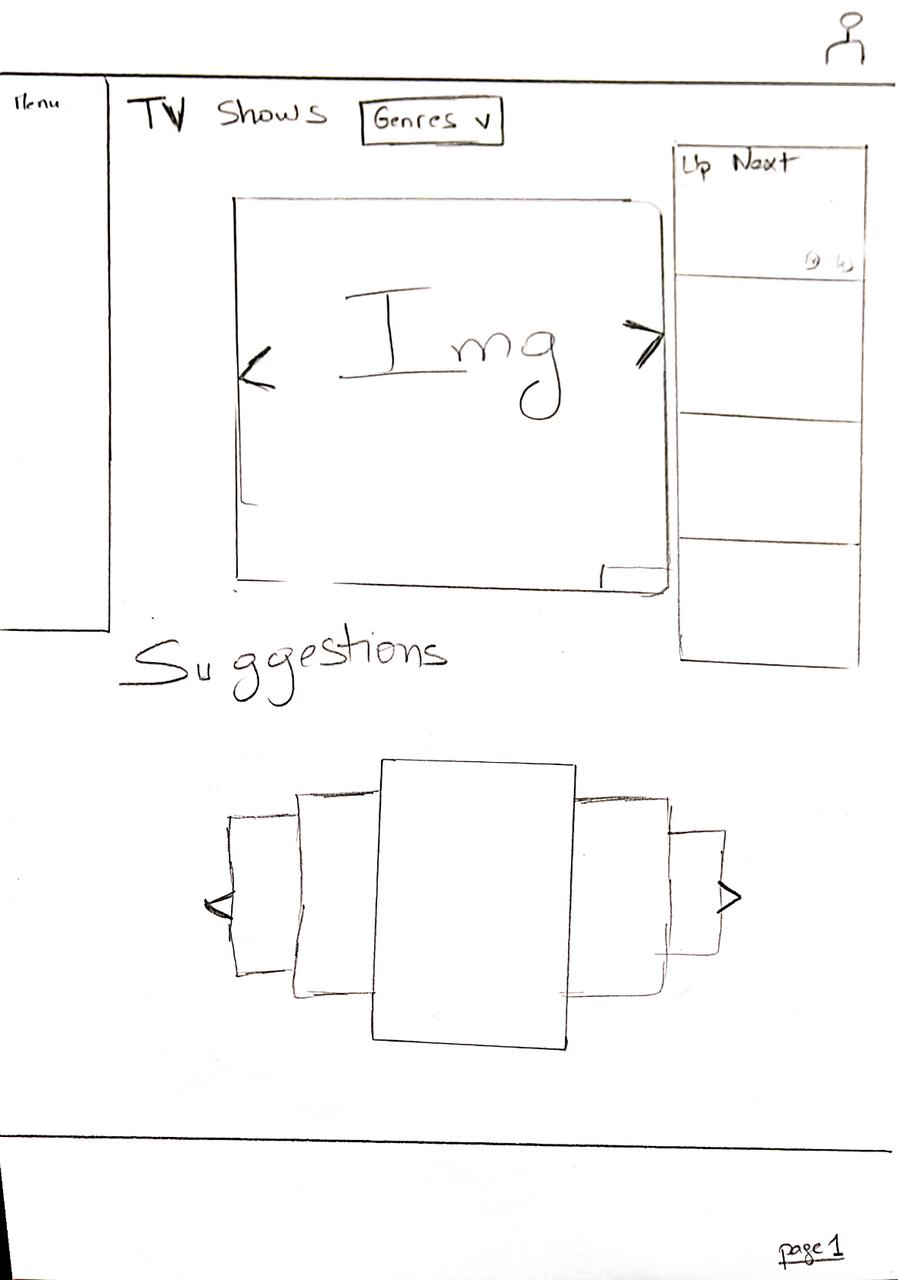 Menu
TV Shows
Genres v
Up Next
Img
Suggestions
page 1